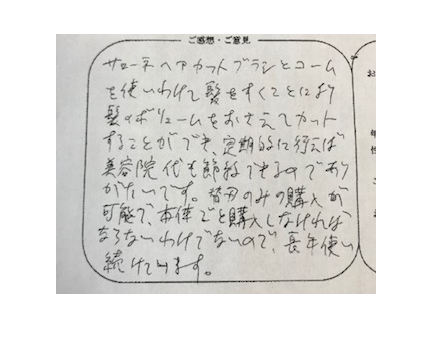 ご感想・ご意見
サローネヘアカットブラシとコーム
を使いわけて髪をすくことにより
髪のボリュームをおさえてカット
することができ、定期的に行えば
美容院代も節約できるのであり
がたいです。替刃のみの購入が
可能で、本体ごと購入しなければ
ならないわけでないので、長年使い
続けています。